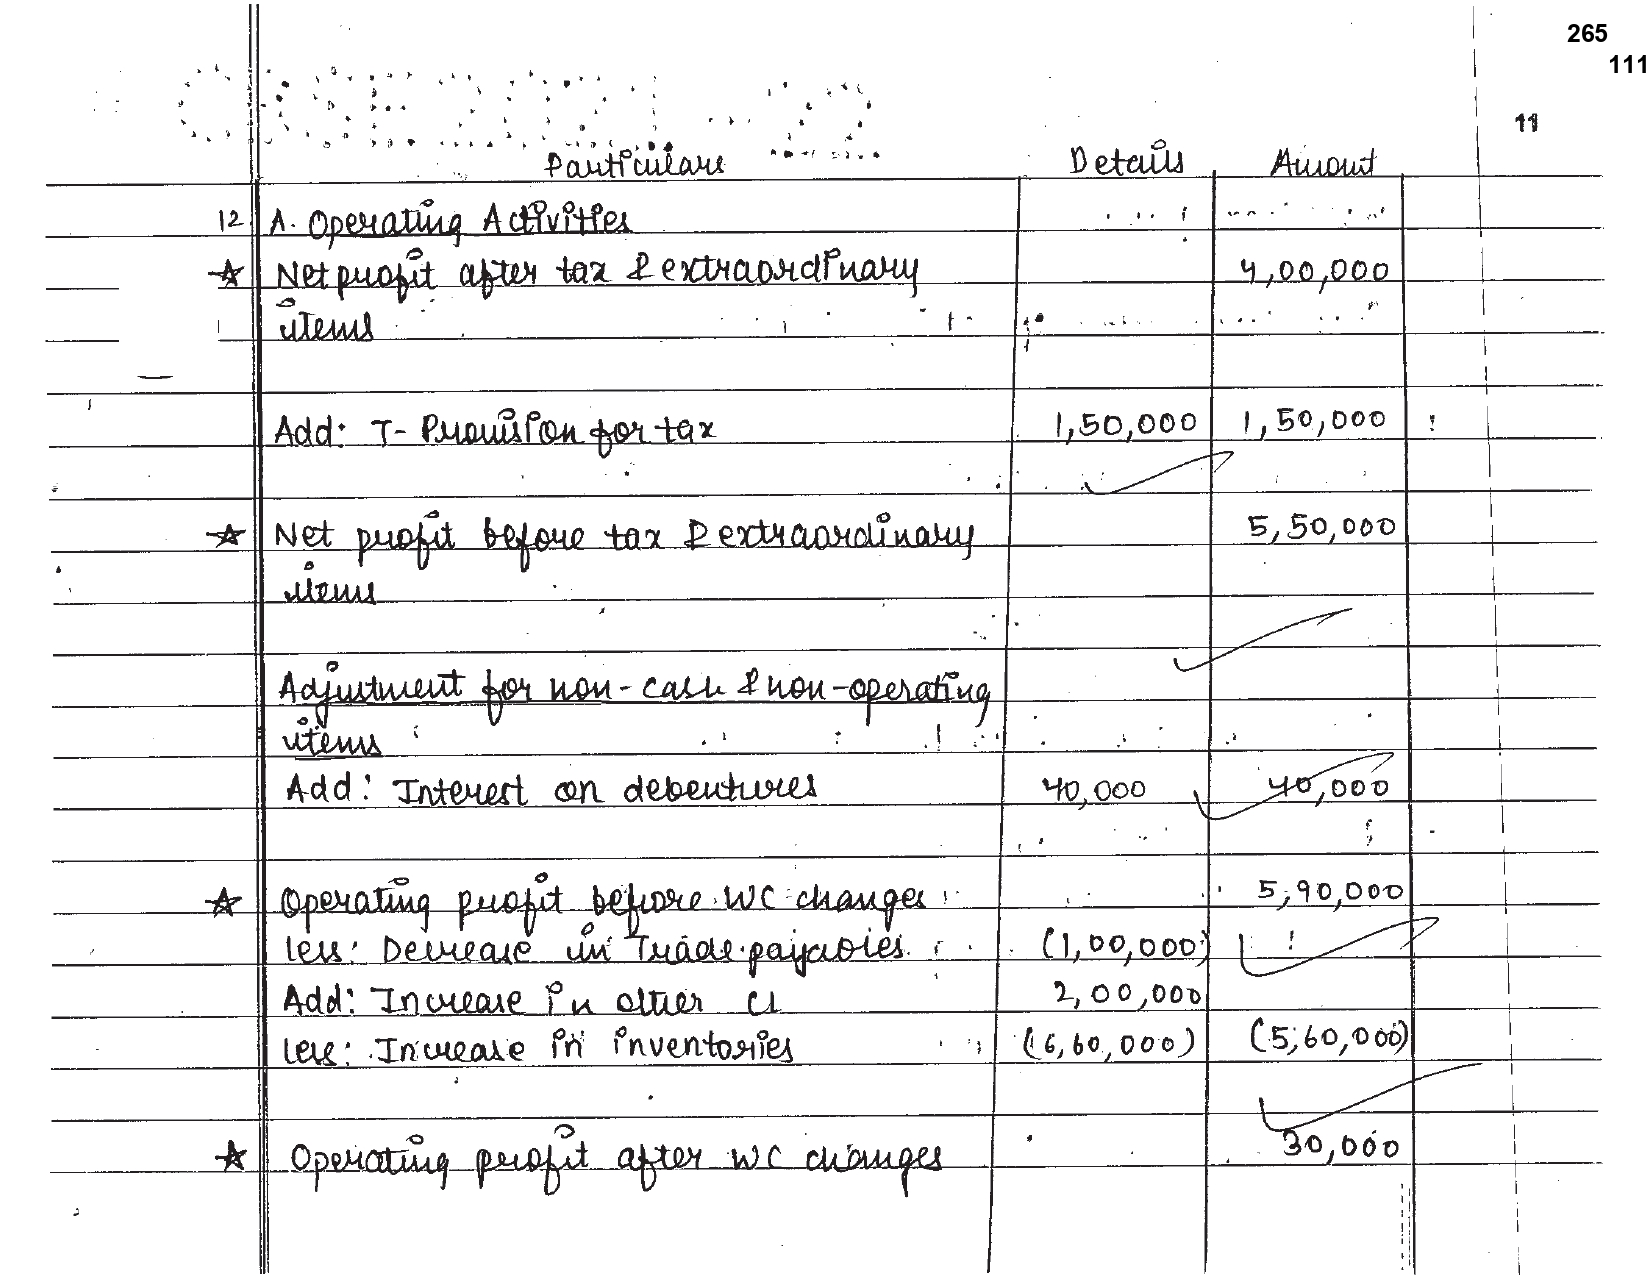 265
111
11
CBSE2021-22
Particulars Details Amount
12 A. Operating Activities
☆ Net profit after tax & extraordinary 4,00,000
items
Add: T- Provision for tax 1,50,000 1,50,000
☆ Net profit before tax & extraordinary 5,50,000
items
Adjustment for non-cash & non-operating
items
Add: Interest on debentures 40,000 40,000
☆ Operating profit before WC changes 5,90,000
less: Decrease in Trade payables (1,00,000)
Add: Increase in other CL 2,00,000
less: Increase in inventories (6,60,000) (5,60,000)
☆ Operating profit after WC changes 30,000